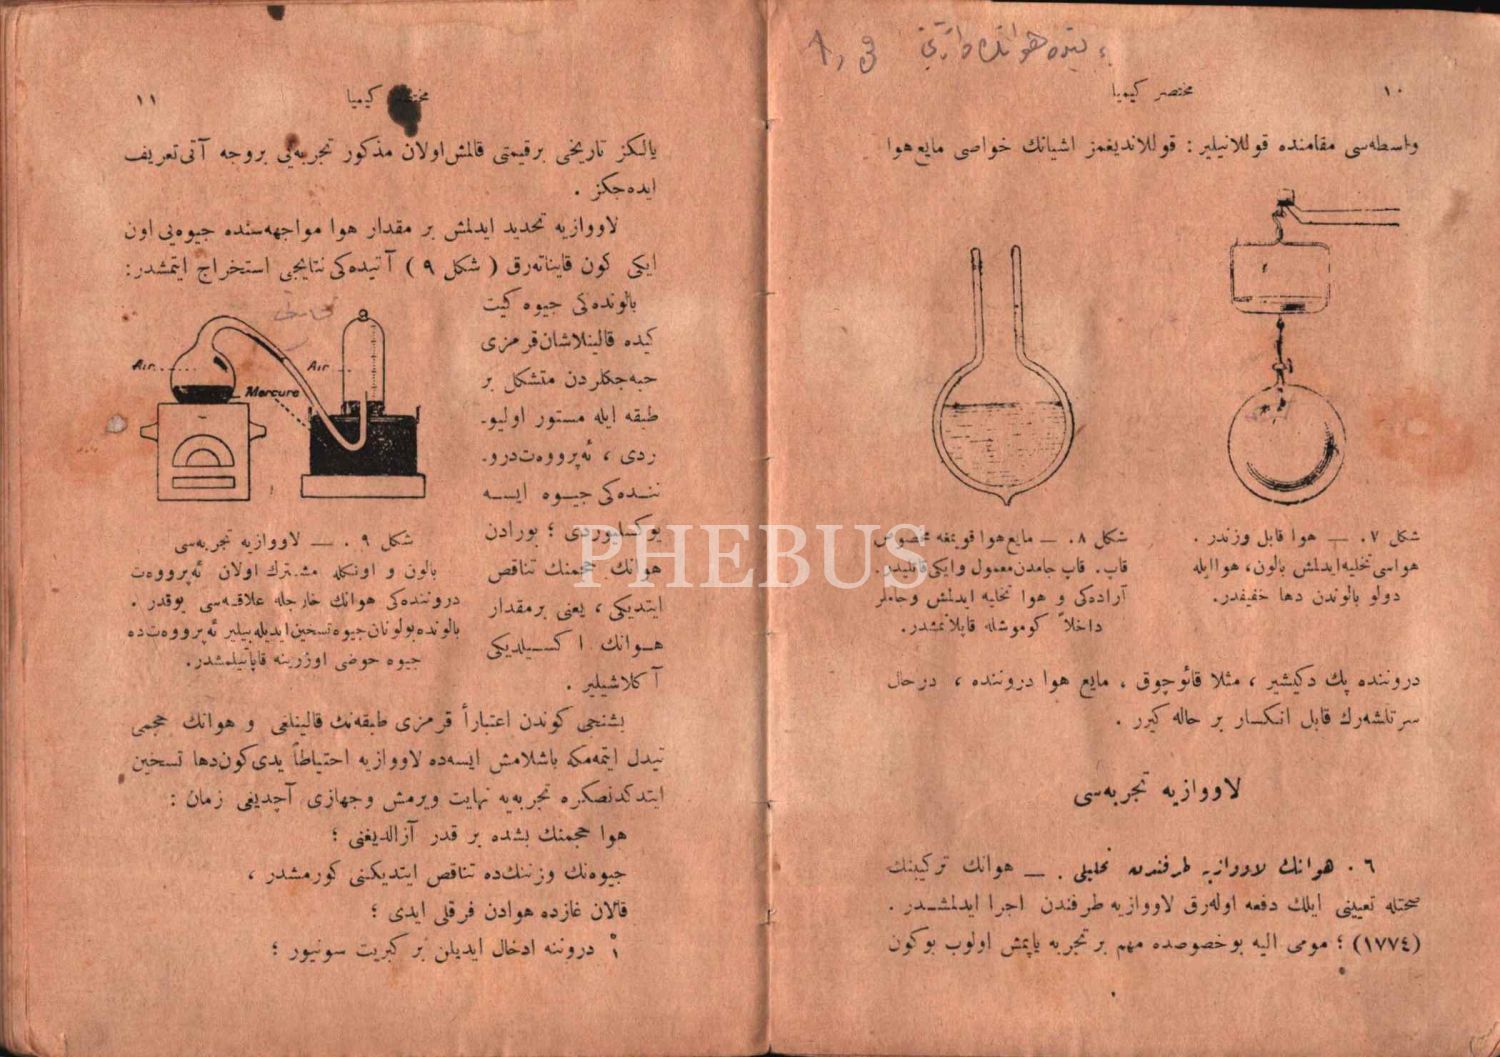 ١٠
مختصر كيميا
واسطه‌سى مقامنده قوللانيلير : قوللانديغمز اشيانك خواصى مايع هوا
شكل ٧. — هوا قابل وزندر .
هواسى تخليه ايدلمش بالون، هوا ايله
دولو بالوندن دها خفيفدر.
شكل ٨. — مايع هوا قويمغه مخصوص
قاپ. قاپ جامدن معمول و ايكى قاتليدر.
آراده‌كى و هوا تخليه ايدلمش وجاملر
داخلاً كوموشله قاپلانمشدر.
دروننده پك دكيشير ، مثلا قائوچوق ، مايع هوا دروننده ، درحال
سرتلشه‌رك قابل انكسار بر حاله كيرر .
لاووازيه تجربه‌سى
٦ . هوانك لاووازيه طرفندن تحليلى . — هوانك تركيبنك
صحتله تعيينى ايلك دفعه اوله‌رق لاووازيه طرفندن اجرا ايدلمشدر .
(١٧٧٤) ؛ مومى اليه بو خصوصده مهم بر تجربه ياپمش اولوب بوكون
١١
مختصر كيميا
يالكز تاريخى بر قيمتى قالمش اولان مذكور تجربه‌يى بروجه آتى تعريف
ايده‌جكز .
لاووازيه تحديد ايدلمش بر مقدار هوا مواجهه‌سنده جيوه‌يى اون
ايكى كون قايناته‌رق ( شكل ٩ ) آتيده‌كى نتايجى استخراج ايتمشدر:
بالونده‌كى جيوه كيت
كيده قالينلاشان قرمزى
حبه‌جكلردن متشكل بر
طبقه ايله مستور اوليو-
ردى ، ئه‌پرووه‌ت درو-
ننده‌كى جيوه ايسه
يوكسليوردى ؛ بورادن
هوانك حجمنك تناقص
ايتديكى ، يعنى بر مقدار
هوانك اكسيلديكى
آكلاشيلير .
Air
Air
Mercure
شكل ٩ . — لاووازيه تجربه‌سى
بالون و اونكله مشترك اولان ئه‌پرووه‌ت
دروننده‌كى هوانك خارجله علاقه‌سى يوقدر .
بالونده بولونان جيوه تسخين ايديله‌بيلير ئه‌پرووه‌ت ده
جيوه حوضى اوزرينه قاپاتيلمشدر.
بشنجى كوندن اعتباراً قرمزى طبقه‌نك قالينلغى و هوانك حجمى
تبدل ايتمه‌مكه باشلامش ايسه‌ده لاووازيه احتياطاً يدى كون دها تسخين
ايتدكدنصكره تجربه‌يه نهايت ويرمش و جهازى آچديغى زمان :
هوا حجمنك بشده بر قدر آزالديغنى ؛
جيوه‌نك وزننك‌ده تناقص ايتديكنى كورمشدر ،
قالان غازده هوادن فرقلى ايدى ؛
آ دروننه ادخال ايديلن بر كبريت سونيور ؛
PHEBUS